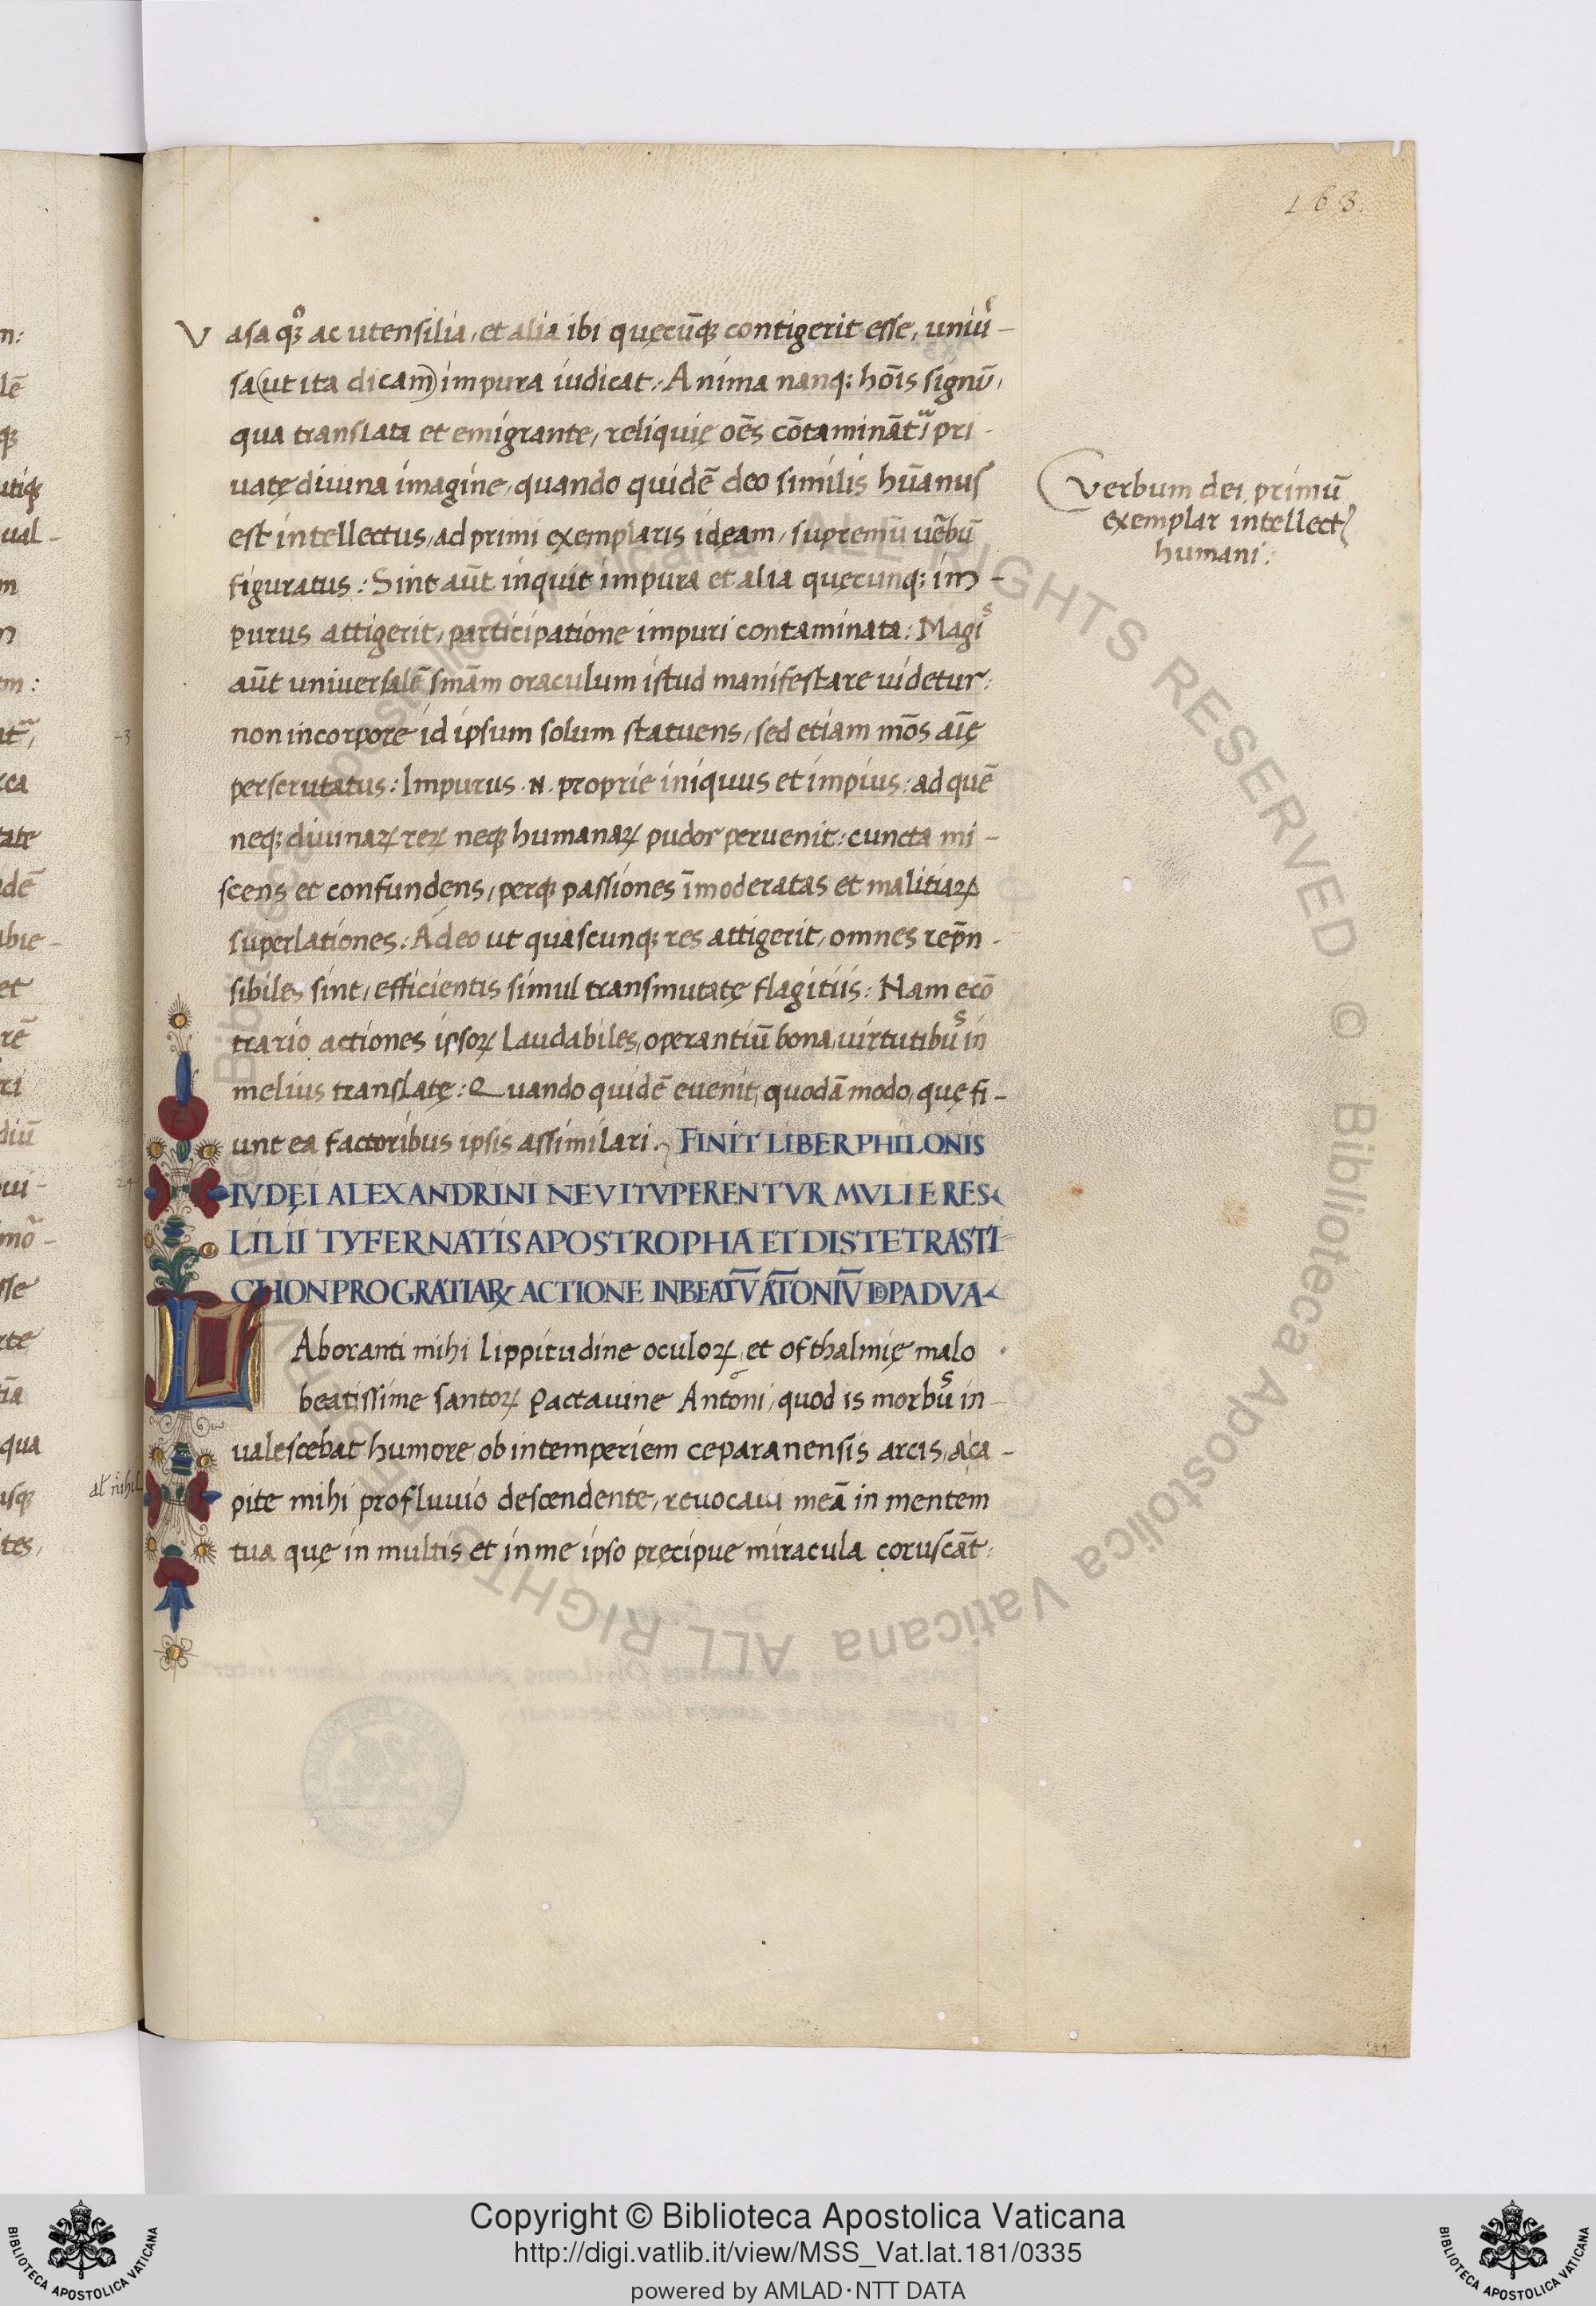 163.
Vasa qꝫ° ac utensilia, et alia ibi quęcūqꝫ contigerit esse, uniũ-
sa (ut ita dicam) impura iudicat: Anima nanq; hoīs signū,
qua translata et emigrante, reliquię oēs cōtamināt~ pri-
uatę diuina imagine, quando quidē deo similis hūanus
est intellectus, ad primi exemplaris idęam, supremū uẽbū
figuratus: Sint aūt inquit impura et alia quęcunq; im-
purus attigerit, participatione impuri contaminata: Magis
aūt universalē smām oraculum istud manifestare uidetur:
non in corpore id ipsum solum statuens, sed etiam mōs aīę
perscrutatus: Impurus .N. proprie iniquus et impius: ad quē
neqꝫ diuinaꝝ reꝝ neqꝫ humanaꝝ pudor peruenit: cuncta mi-
scens et confundens, perqꝫ passiones īmoderatas et malitiaꝝ
superlationes: Adeo ut quascunqꝫ res attigerit, omnes rep̄n-
sibiles sint, efficientis simul transmutatę flagitiis: Nam ecō
trario actiones ipsoꝝ laudabiles, operantiū bona, uirtutibus in
melius translatę: Quando quidē evenit, quodā modo, quę fi-
unt ea factoribus ipsis assimilari. FINIT LIBER PHILONIS
IVDĘI ALEXANDRINI NE VITVPERENTVR MVLIERES
LILII TYFERNATIS APOSTROPHA ET DISTETRASTI=
CHON PRO GRATIAꝜ ACTIONE IN BEATV̄ ĀTONIV̄ DE PADVA
LAboranti mihi lippitudine oculoꝝ, et ofthalmię malo
beatissime santoꝝ Pactavine Antoni, quod is morbus in
ualescebat humore, ob intemperiem ceparanensis arcis, a ca-
pite mihi profluvio descendente, revocavi meā in mentem
tua quę in multis et in me ipso pręcipue miracula coruscāt:
Verbum dei primū
exemplar intellectꝰ
humani:
al nihil
Copyright © Biblioteca Apostolica Vaticana
http://digi.vatlib.it/view/MSS_Vat.lat.181/0335
powered by AMLAD·NTT DATA
BIBLIOTECA APOSTOLICA VATICANA
BIBLIOTECA APOSTOLICA VATICANA
© Biblioteca Apostolica Vaticana ALL RIGHTS RESERVED
© Biblioteca Apostolica Vaticana ALL RIGHTS RESERVED